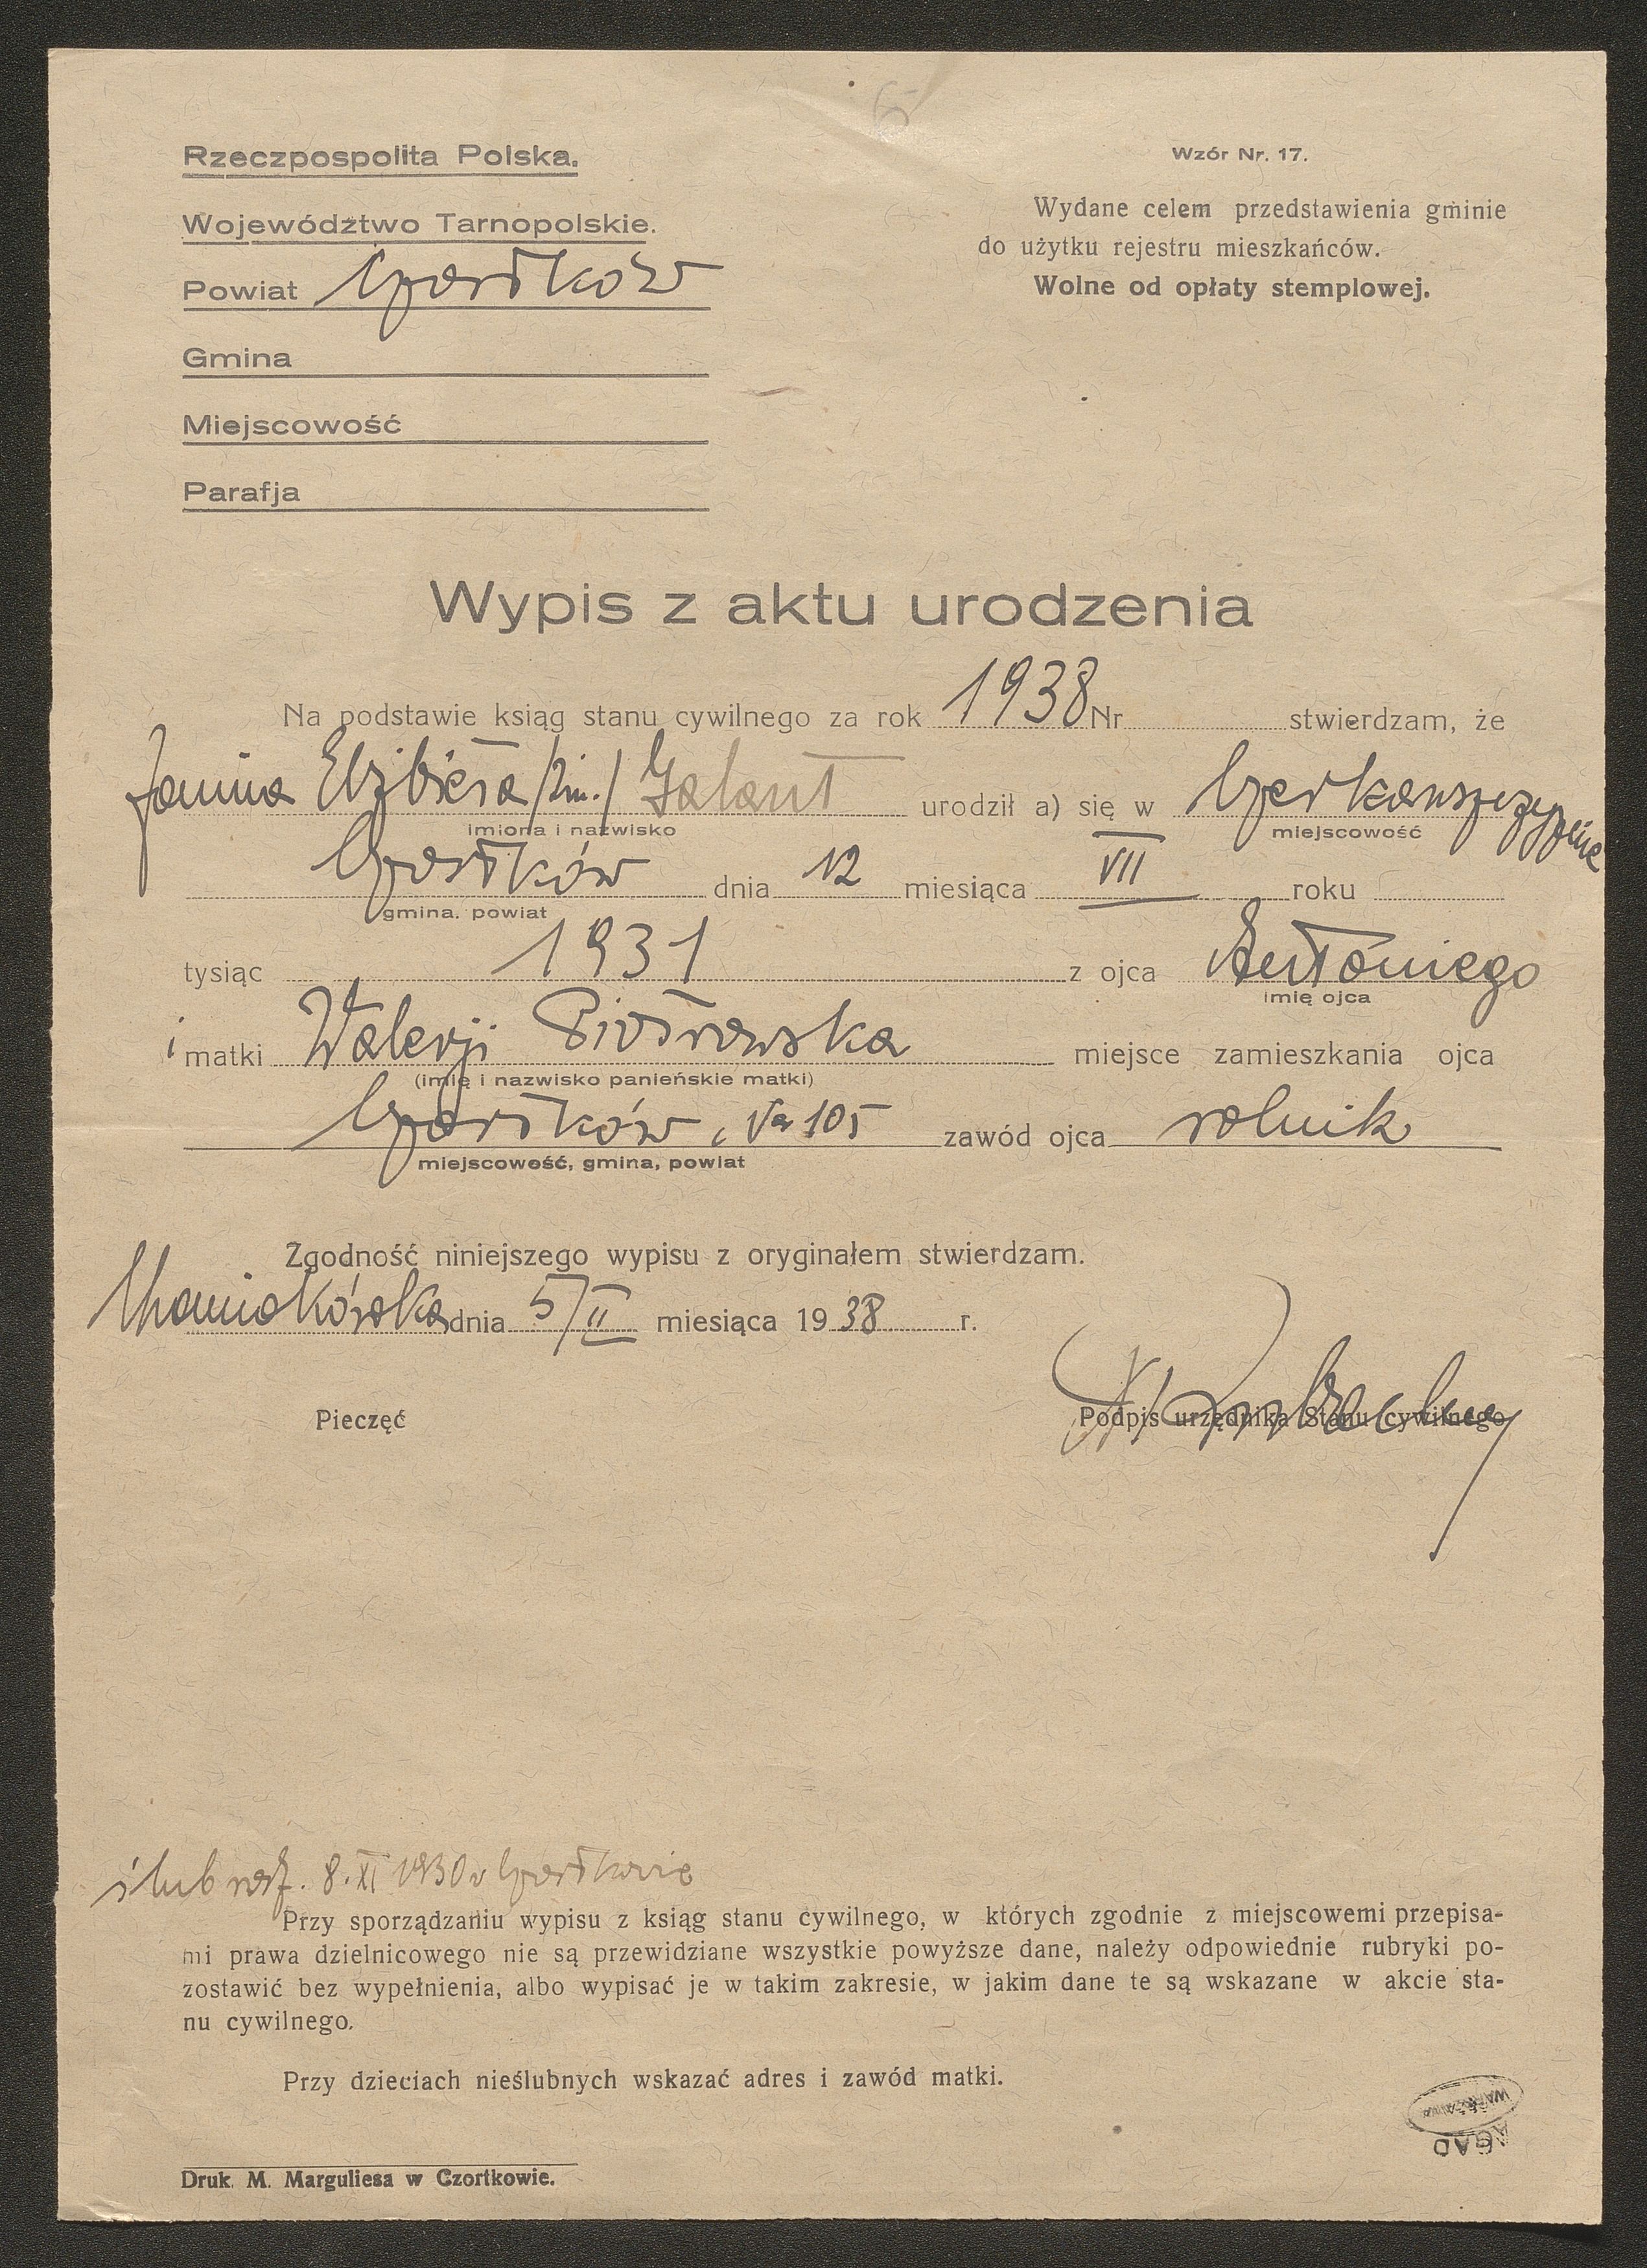 6
Rzeczpospolita Polska.
Wzór Nr. 17.
Województwo Tarnopolskie.
Wydane celem przedstawienia gminie
do użytku rejestru mieszkańców.
Wolne od opłaty stemplowej.
Powiat Czortków
Gmina
Miejscowość
Parafja
Wypis z aktu urodzenia
Na podstawie ksiąg stanu cywilnego za rok 1938 Nr stwierdzam, że
Janina Elżbieta /2im./ Galant urodził a) się w Czerkawszczyźnie
imiona i nazwisko miejscowość
Czortków dnia 12 miesiąca VII roku
gmina. powiat
tysiąc 1931 z ojca Antoniego
imię ojca
i matki Walerji Piotrowska miejsce zamieszkania ojca
(imię i nazwisko panieńskie matki)
Czortków, Nr 105 zawód ojca rolnik
miejscowość, gmina, powiat
Zgodność niniejszego wypisu z oryginałem stwierdzam.
dnia 5/II miesiąca 1938 r.
Pieczęć
Podpis urzędnika Stanu cywilnego
ślub 8.XI 1930 w Czortkowie
Przy sporządzaniu wypisu z ksiąg stanu cywilnego, w których zgodnie z miejscowemi przepisa-
mi prawa dzielnicowego nie są przewidziane wszystkie powyższe dane, należy odpowiednie rubryki po-
zostawić bez wypełnienia, albo wypisać je w takim zakresie, w jakim dane te są wskazane w akcie sta-
nu cywilnego.
Przy dzieciach nieślubnych wskazać adres i zawód matki.
WARSZAWA
AGAD
Druk. M. Marguliesa w Czortkowie.